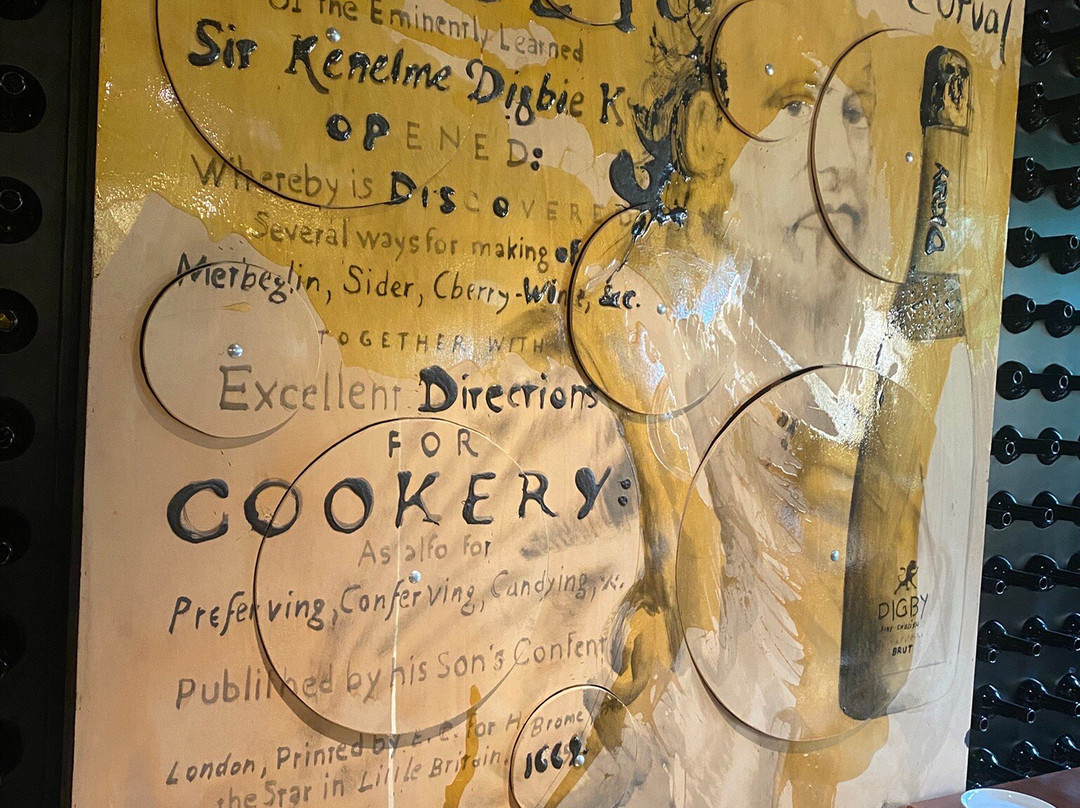 Of the Eminently Learned
Sir Kenelme Digbie K
OPENED:
Whereby is DISCOVERED
Several ways for making of
Metheglin, Sider, Cherry-Wine, &c.
TOGETHER WITH
Excellent Directions
FOR
COOKERY:
As alfo for
Preferving, Conferving, Candying, &c.
Publifhed by his Son's Confent
London, Printed by E. C. for H. Brome
the Star in Little Britain. 1669.
DIGBY
FINE ENGLISH
BRUT